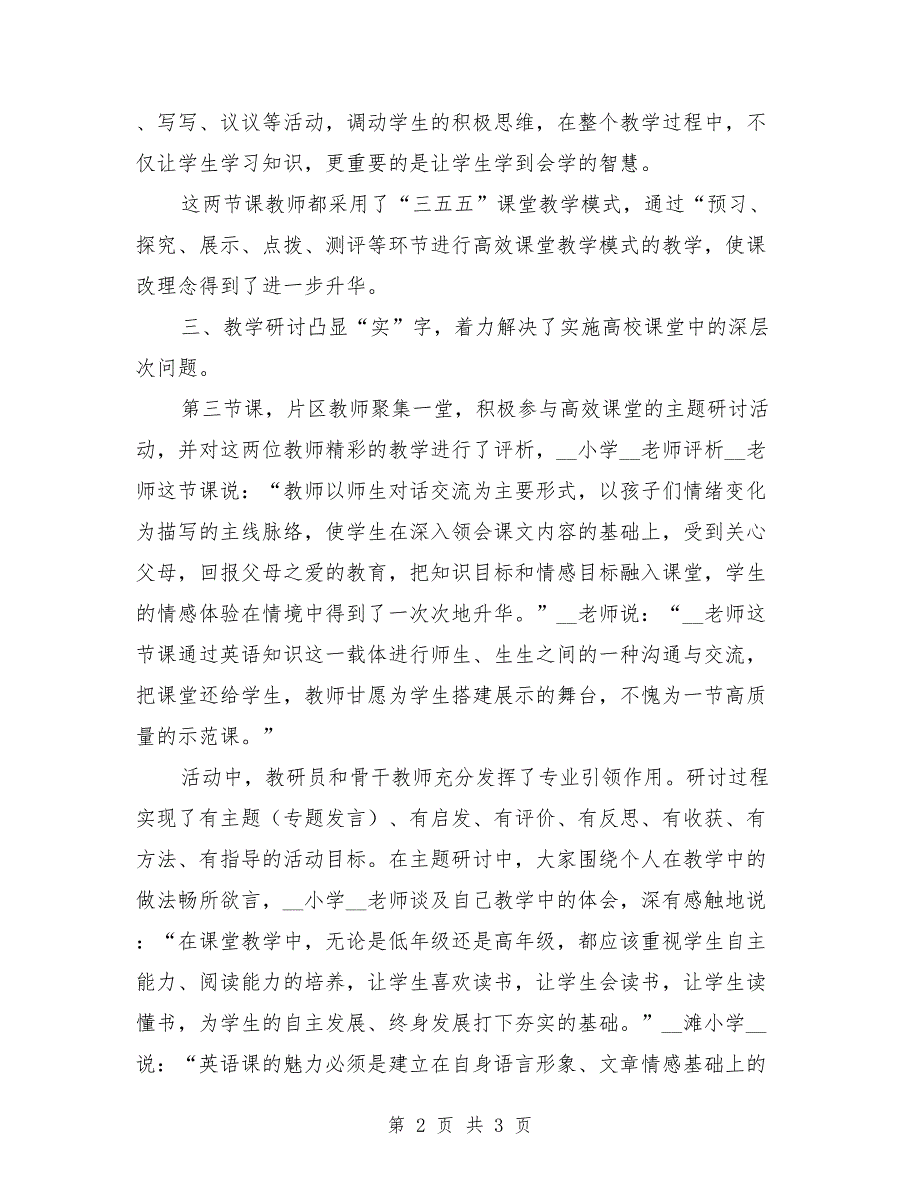 、写写、议议等活动，调动学生的积极思维，在整个教学过程中，不
仅让学生学习知识，更重要的是让学生学到会学的智慧。
这两节课教师都采用了“三五五”课堂教学模式，通过“预习、
探究、展示、点拨、测评等环节进行高效课堂教学模式的教学，使课
改理念得到了进一步升华。
三、教学研讨凸显“实”字，着力解决了实施高校课堂中的深层
次问题。
第三节课，片区教师聚集一堂，积极参与高效课堂的主题研讨活
动，并对这两位教师精彩的教学进行了评析，__小学__老师评析__老
师这节课说：“教师以师生对话交流为主要形式，以孩子们情绪变化
为描写的主线脉络，使学生在深入领会课文内容的基础上，受到关心
父母，回报父母之爱的教育，把知识目标和情感目标融入课堂，学生
的情感体验在情境中得到了一次次地升华。”__老师说：“__老师这
节课通过英语知识这一载体进行师生、生生之间的一种沟通与交流，
把课堂还给学生，教师甘愿为学生搭建展示的舞台，不愧为一节高质
量的示范课。”
活动中，教研员和骨干教师充分发挥了专业引领作用。研讨过程
实现了有主题（专题发言）、有启发、有评价、有反思、有收获、有
方法、有指导的活动目标。在主题研讨中，大家围绕个人在教学中的
做法畅所欲言，__小学__老师谈及自己教学中的体会，深有感触地说
：“在课堂教学中，无论是低年级还是高年级，都应该重视学生自主
能力、阅读能力的培养，让学生喜欢读书，让学生会读书，让学生读
懂书，为学生的自主发展、终身发展打下夯实的基础。”__滩小学__
说：“英语课的魅力必须是建立在自身语言形象、文章情感基础上的
第 2 页 共 3 页